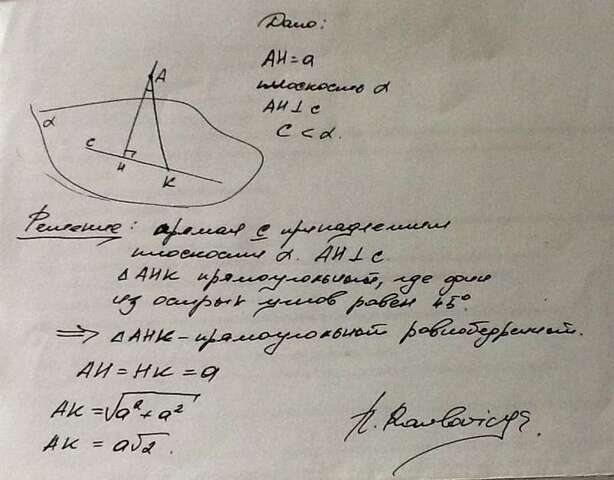 Дано:
AH = a
плоскость α
AH ⊥ c
C < α.
A
α
c
H
K
Решение: прямая c принадлежит
плоскости α. AH ⊥ c.
△ AHK прямоугольный, где один
из острых углов равен 45°.
⇒ △ AHK - прямоугольный равнобедренный.
AH = HK = a
AK = √a² + a²
AK = a√2.